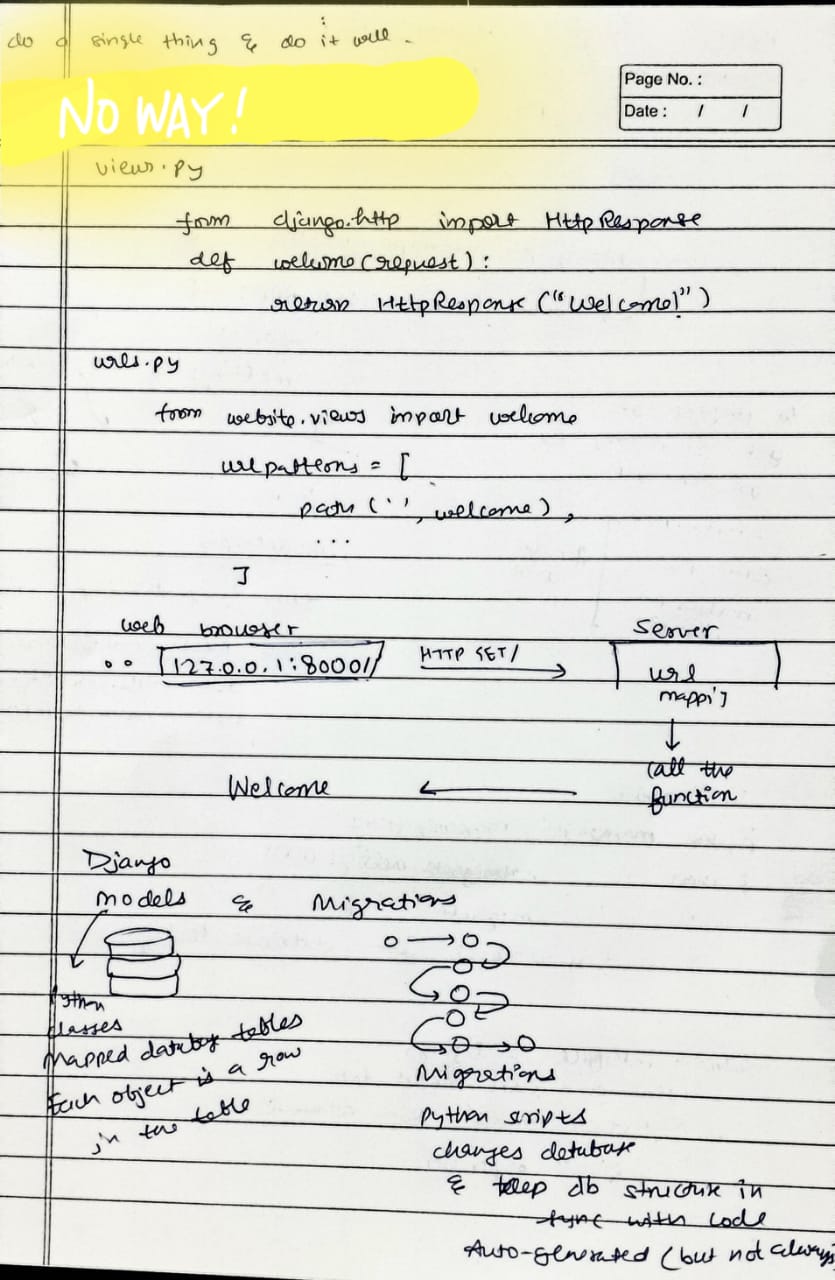 do a single thing & do it well.
NO WAY!
Page No. :
Date : / /
views.py
from django.http import HttpResponse
def welcome(request):
return HttpResponse("Welcome!")
urls.py
from website.views import welcome
urlpatterns = [
path('', welcome),
...
]
web browser
Server
127.0.0.1:8000//
HTTP GET/
url
mappi'g
call the
function
Welcome
Django
models & Migrations
Python
classes
Mapped database tables
Each object is a row
in the table
Migrations
Python scripts
changes database
& keep db structure in
sync with code
Auto-generated (but not always)